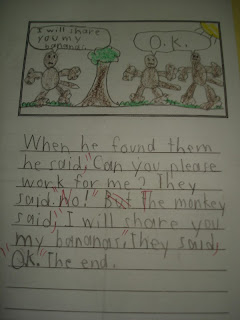 I will share
you my
bananas.
O.K.
When he found them
he said, "Can you please
work for me? They
said. "No!" But The monkey
said, "I will share you
my bananas," They said,
"OK." The end.